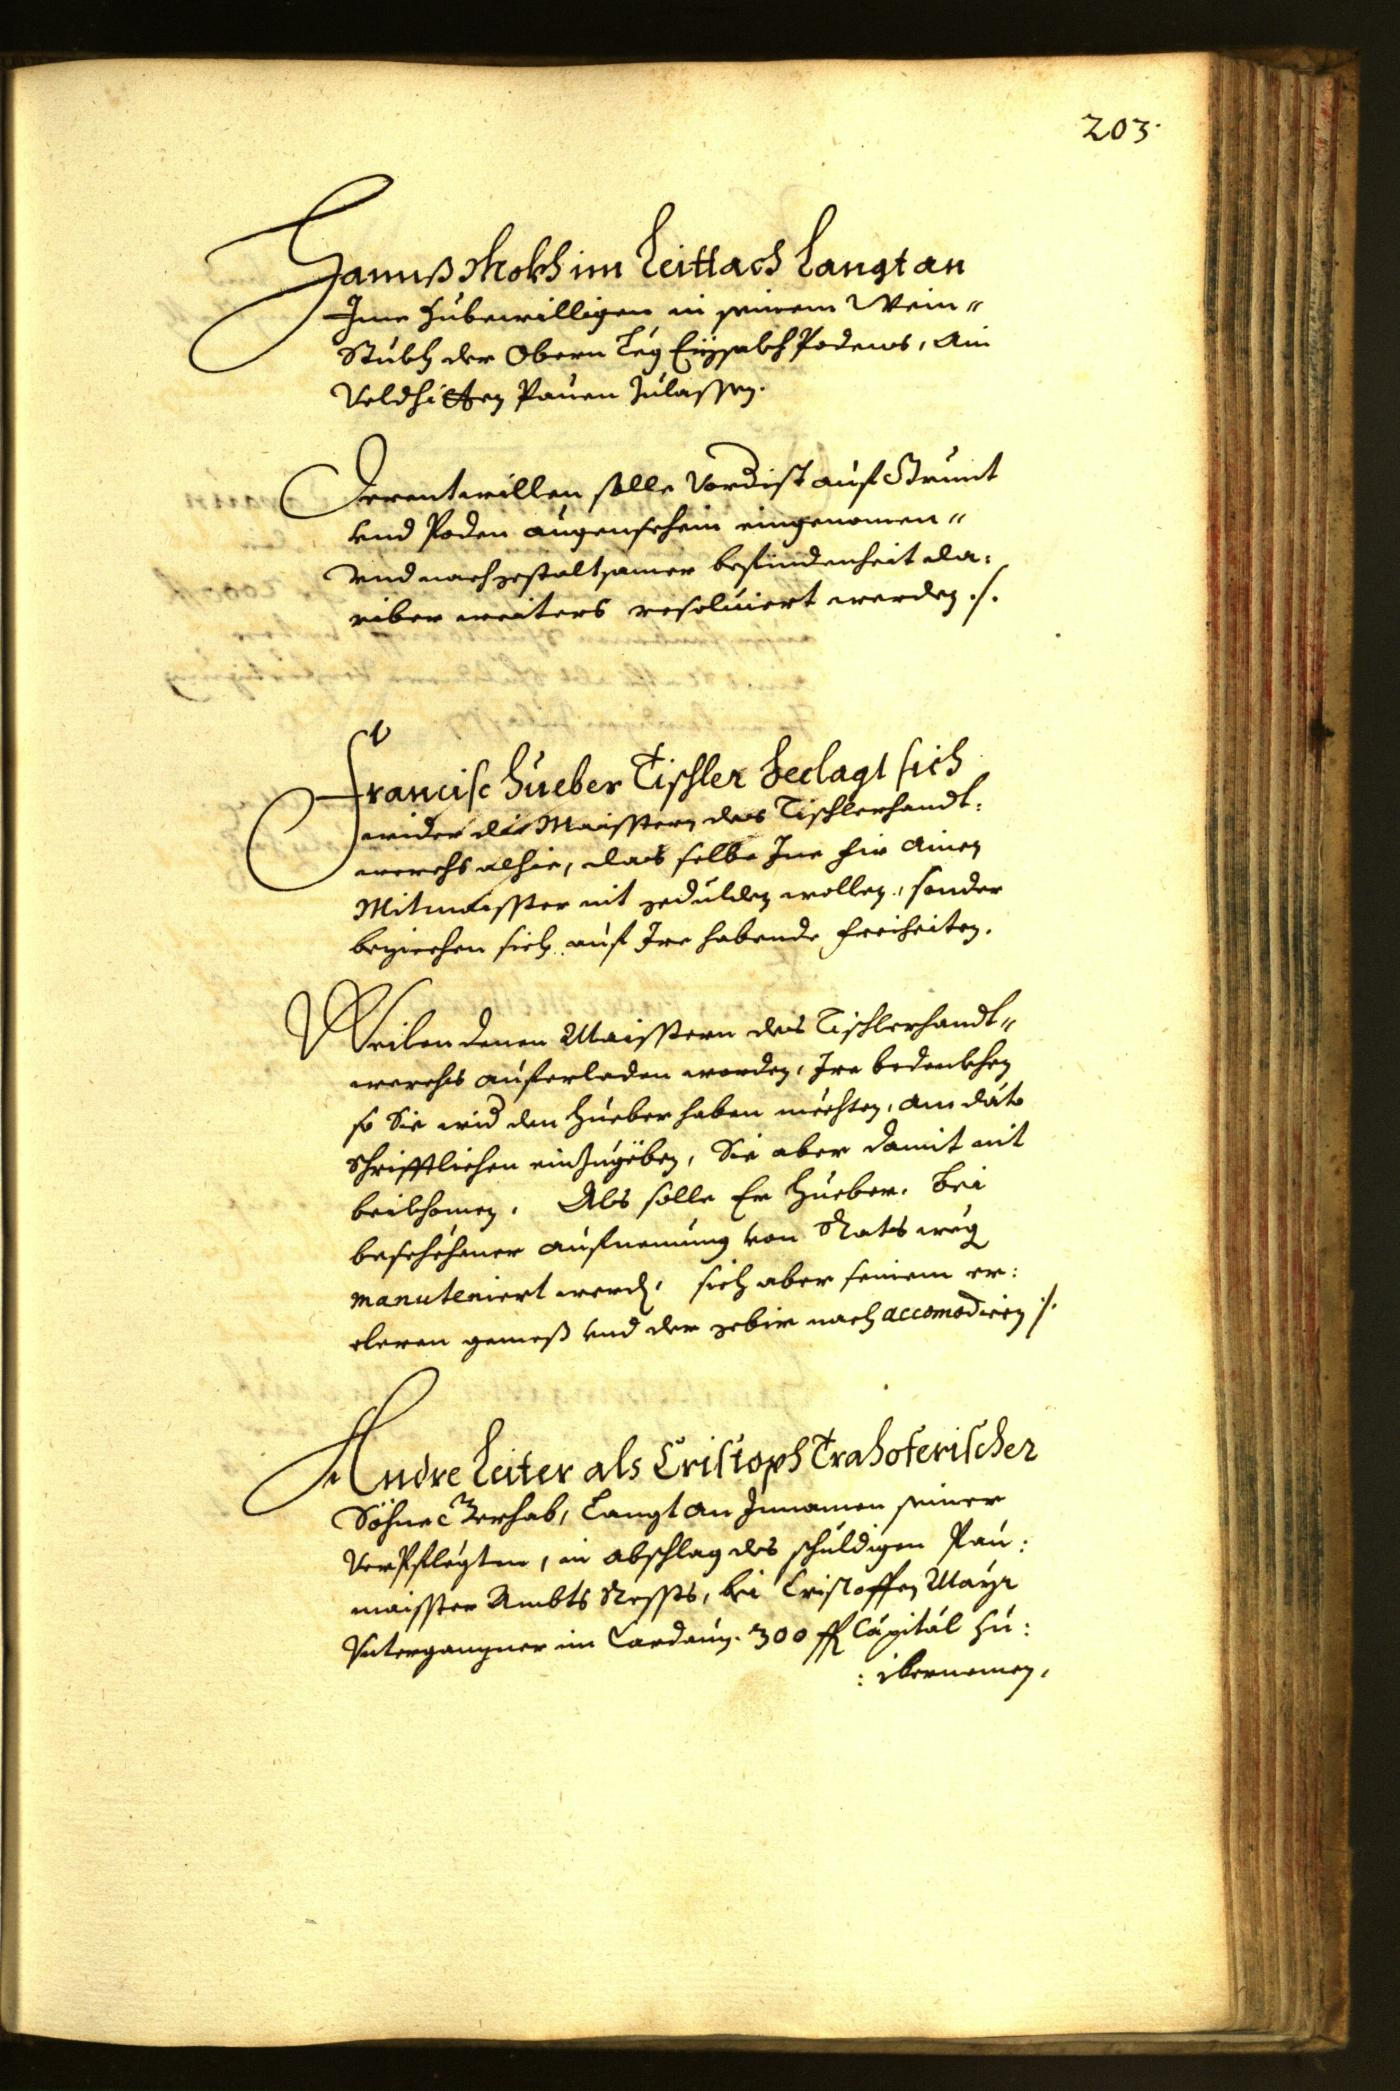 203.
Hannß Mokh im Leittach Langt an
Ime zubewilligen in seinem Wein-
Stukh der Obern Leg Eyssakh Podens, ain
Veldhitten Pauen zulassen.
Derentwillen solle Vordist auf Grunt
vnd Poden augenschein eingenomen
vnd nach gestaltsamer befindenheit da:
riber weiters resoluiert werden ./.
Francisc Hueber Tischler beclagt sich
wider die Maisstern des Tischlerhandt:
werchs alhie, das selbe Ine fir ainen
Mitmaisster nit gedulden wollen, sonder
beziechen sich auf Ire habende freiheiten.
Weilen denen Maisstern des Tischlerhandt-
werchs auferladen worden, Ire bedenkhen
so Sie wid den Hueber haben mechten, am dato
schrifftlichen einzugeben, Sie aber damit nit
beikhomen. Als solle Er Hueber, bei
beschehener aufnemung von Rats weg
manuteniert werden, sich aber seinem er:
cleren gemeß vnd der gebir nach accomodiern ./.
Andre Leiter als Cristoph Trahoferischer
Söhne Gerhab, Langt an Innamen seiner
Verpflegten, in abschlag des schuldigen Pau:
maisster Ambts Ressts, bei Cristoffen Mayr
Vntergangner im Cardaun. 300 fl Capital zu:
: ibernemen,